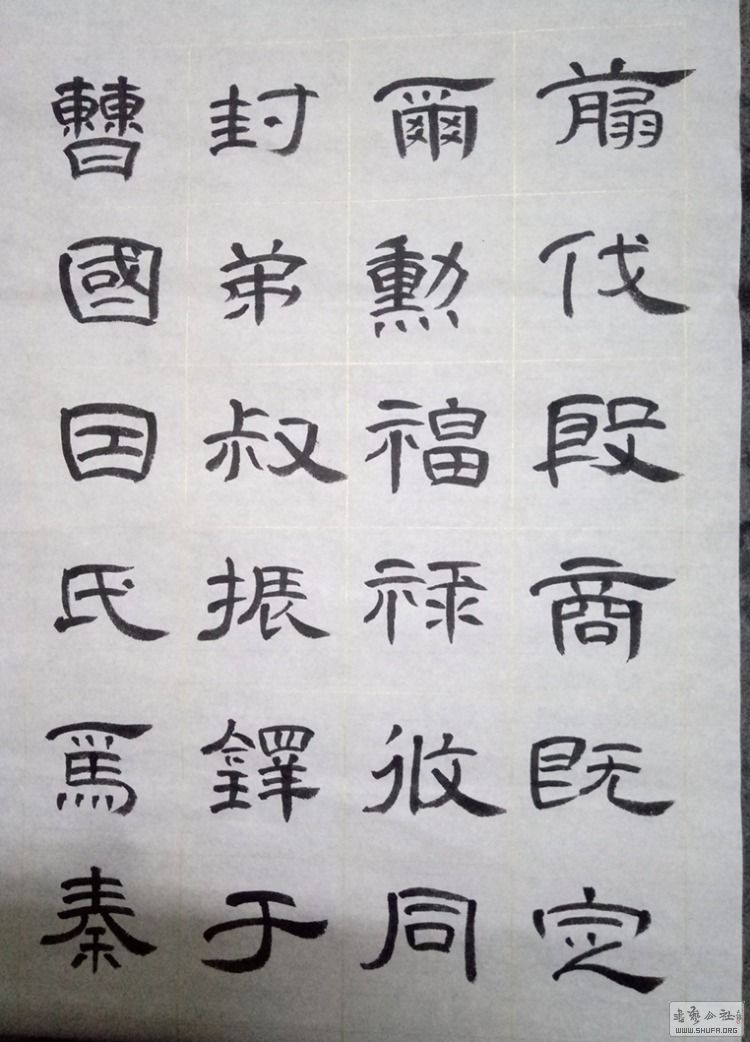 翦伐殷商既定
爾勳福禄攸同
封弟叔振鐸于
曹國因氏焉秦
书艺公社
WWW.SHUFA.ORG